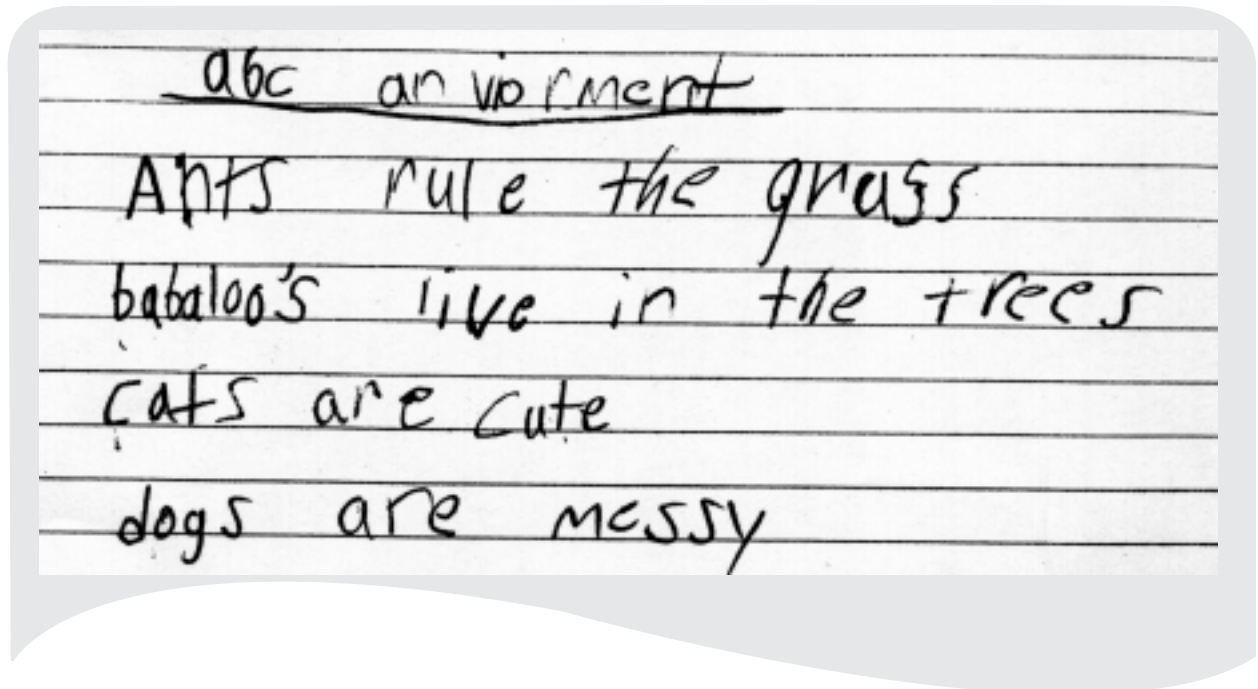 abc an viorment
Ants rule the grass
babaloo's live in the trees
cats are cute
dogs are messy